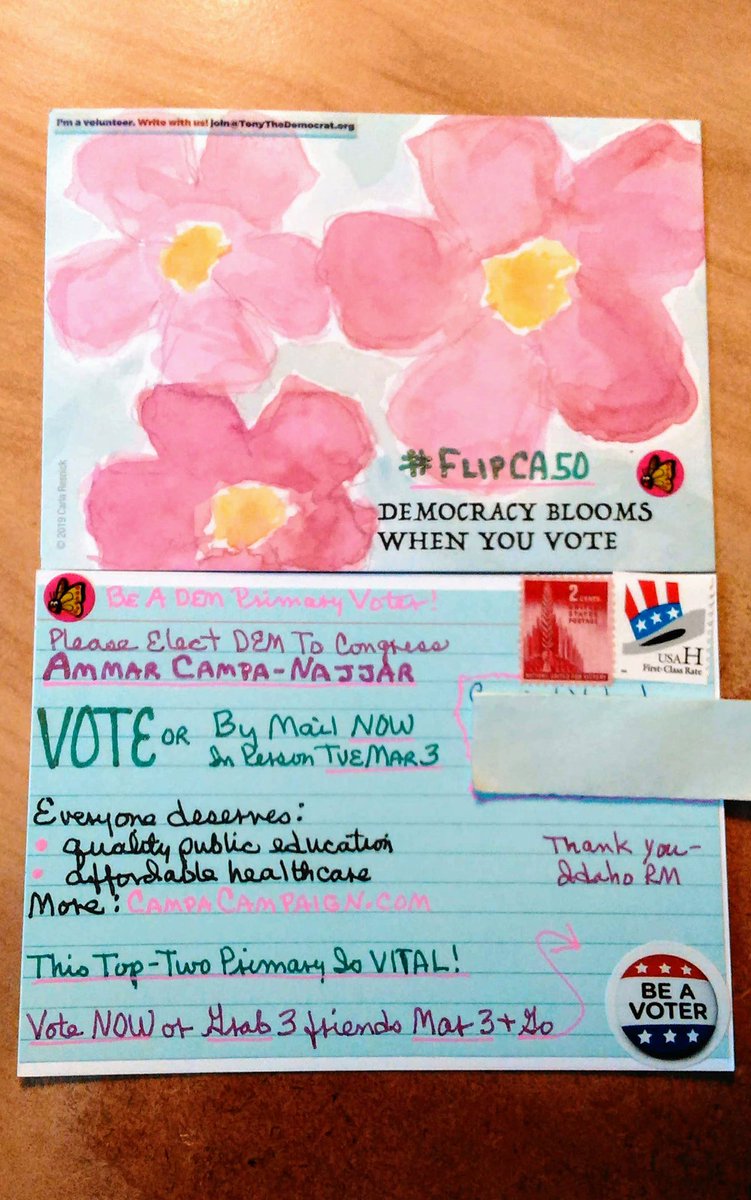 I'm a volunteer. Write with us! join@TonyTheDemocrat.org
© 2019 Carla Resnick
#FLIPCA50
DEMOCRACY BLOOMS
WHEN YOU VOTE
Be A DEM Primary Voter!
Please Elect DEM To Congress
AMMAR CAMPA-NAJJAR
2 CENTS
UNITED STATES POSTAGE
NATIONS UNITED FOR VICTORY
USA H
First-Class Rate
VOTE OR By Mail NOW
In Person TUE MAR 3
Everyone deserves:
• quality public education
• affordable healthcare
More: CAMPACAMPAIGN.COM
Thank you-
Idaho RM
This Top-Two Primary Is VITAL!
Vote NOW or Grab 3 friends Mar 3 + Go
BE A
VOTER